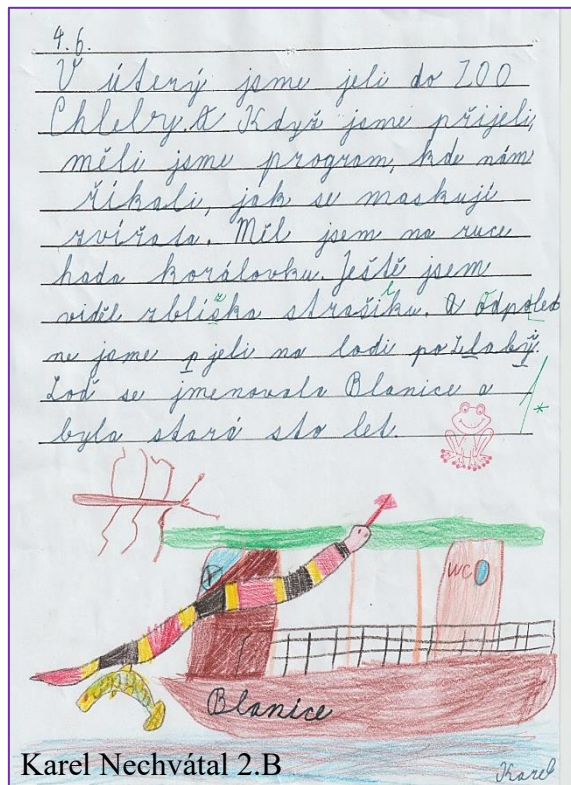 4.6.
V úterý jsme jeli do ZOO
Chleby. A Když jsme přijeli,
měli jsme program, kde nám
říkali, jak se maskují
zvířata. Měl jsem na ruce
hada korálovku. Ještě jsem
viděl zblíska strašilku. A odpoled
ne jsme jeli na lodi po Labi.
Loď se jmenovala Blanice a
byla stará sto let.
WC
Blanice
Karel Nechvátal 2.B
Karel